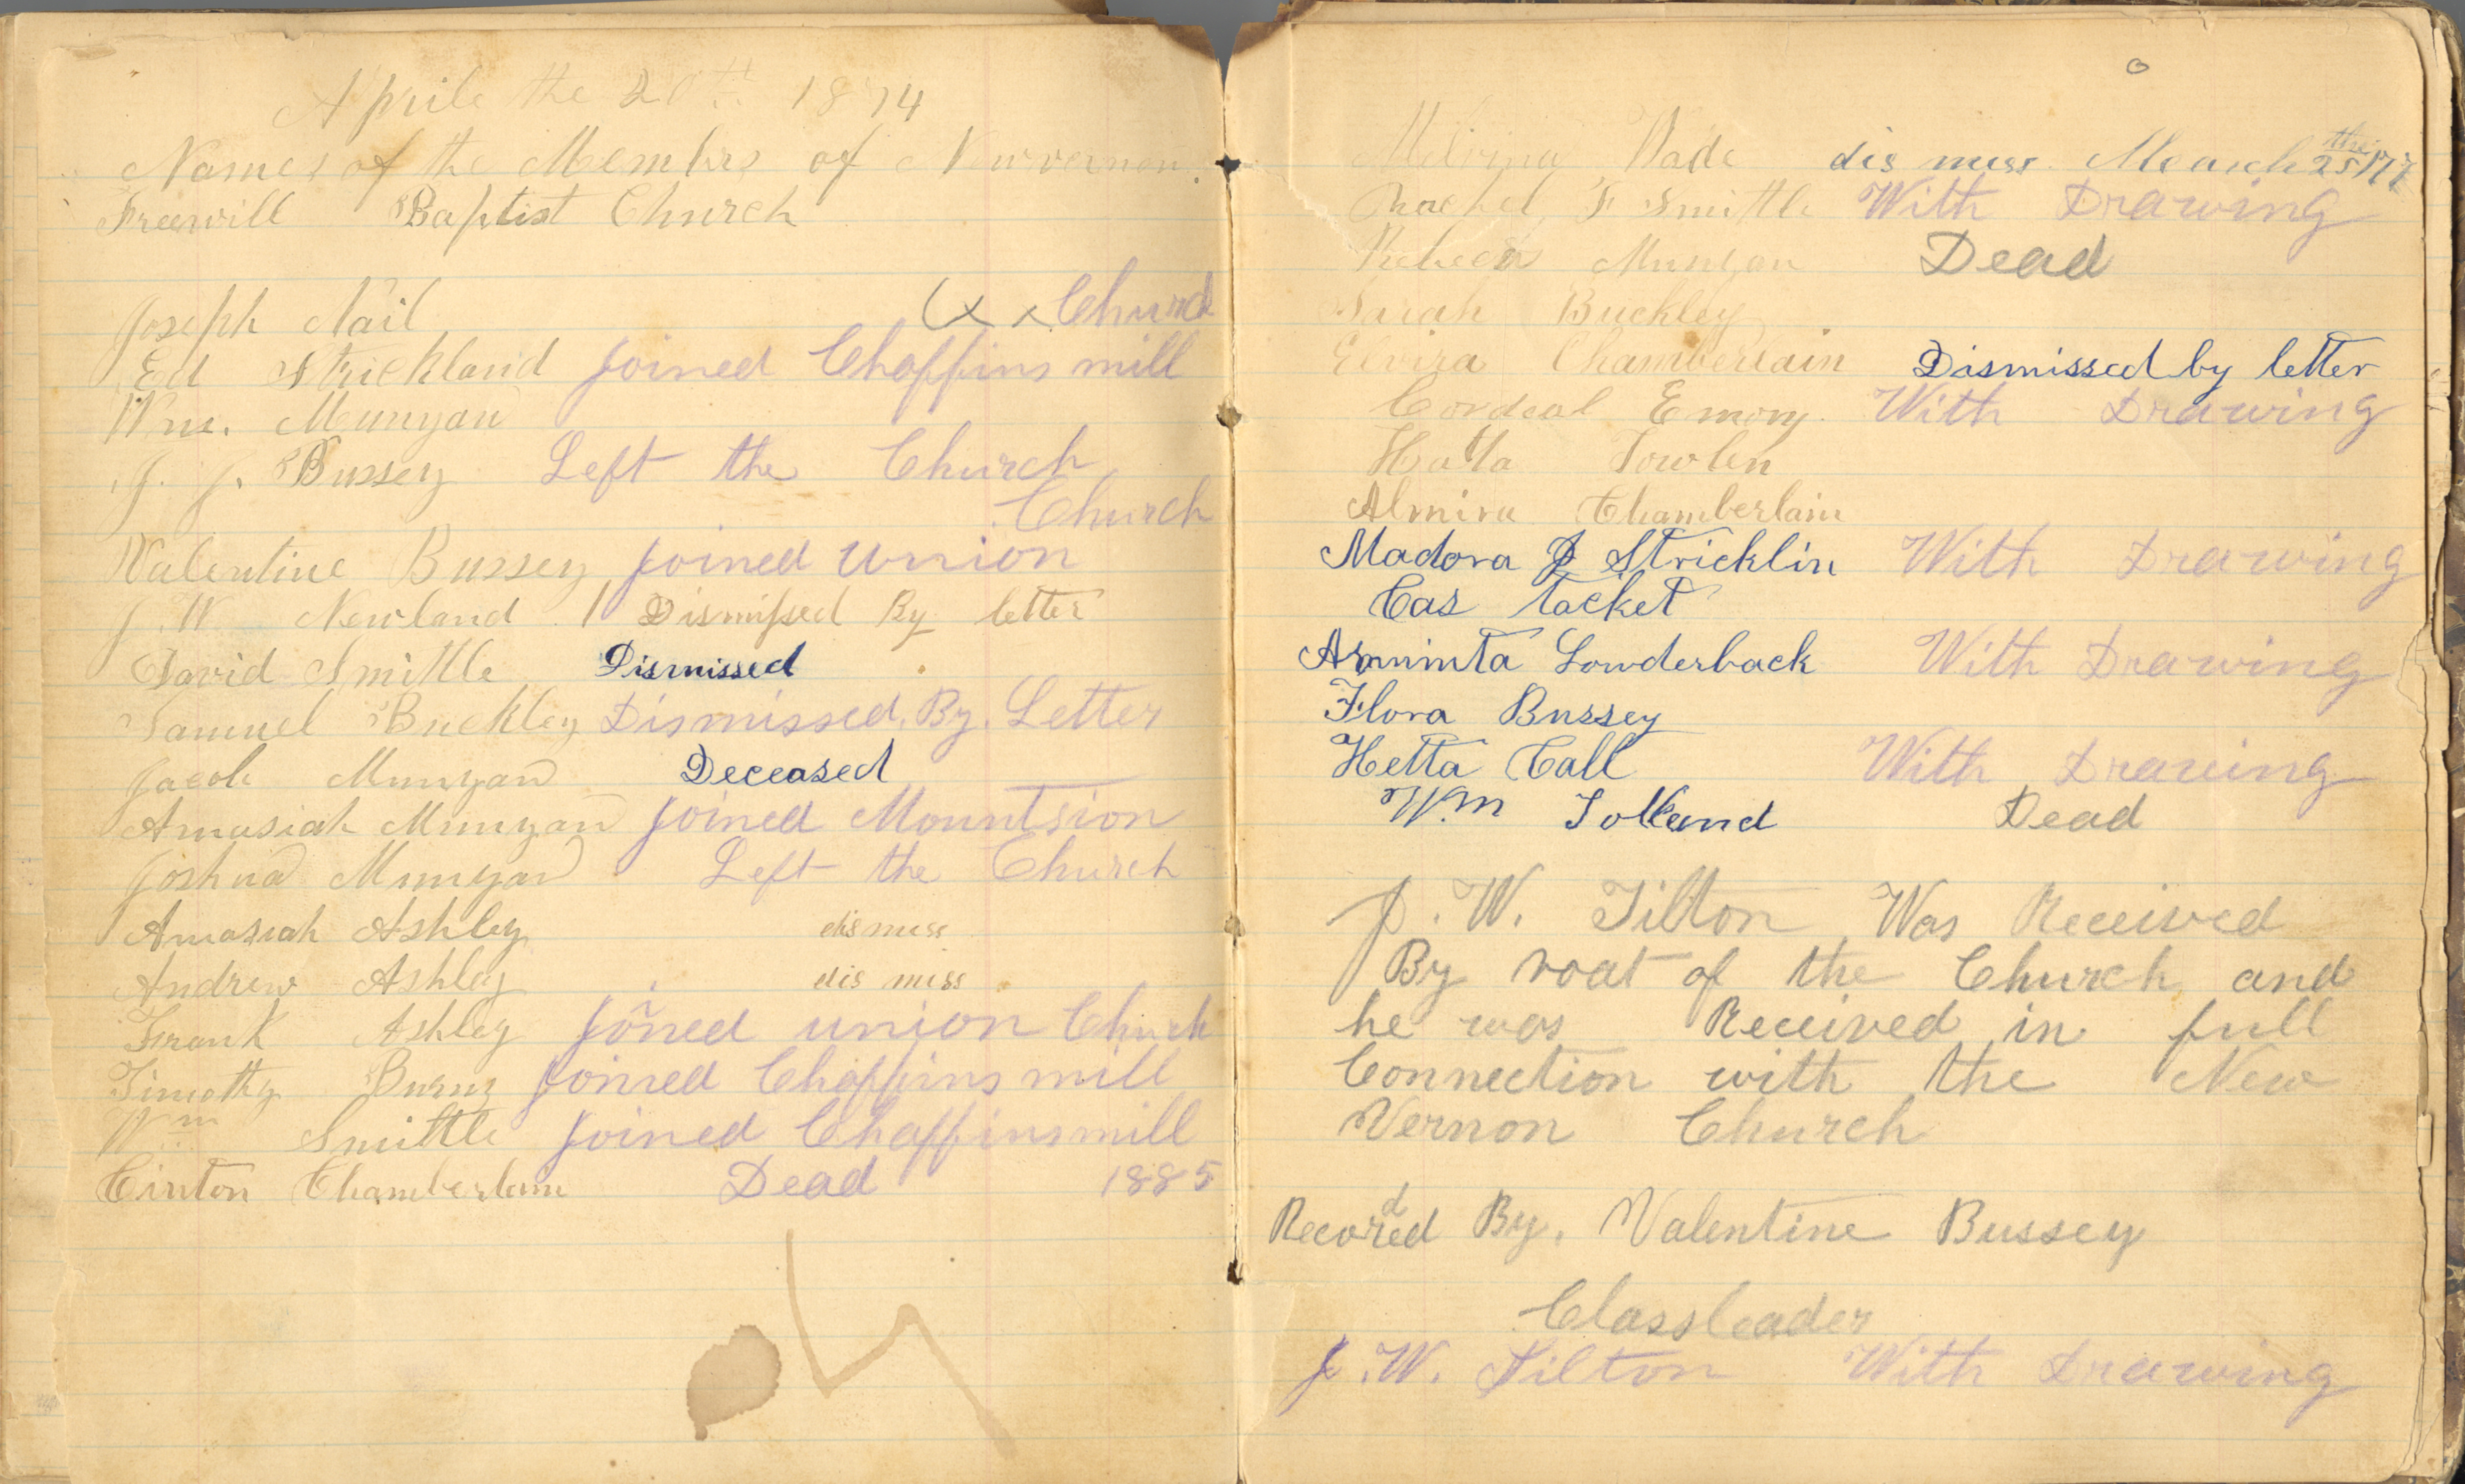 Aprile the 20th 1874
Names of the Membrs of Newvernon
Freewill Baptist Church
Joseph Nail
Church
Ed Strickland Joined Chaffins mill
Wm. Munyan
J. J. Bussey Left the Church
Church
Valentine Bussey Joined union
J. W. Newland Dismissed By letter
David Smittle Dismissed
Samuel Buckley Dismissed. By. Letter
Jacob Munyan Deceased
Amasiah Munyan Joined Mountsion
Joshua Munyan Left the Church
Amasiah Ashley dis miss
Andrew Ashley dis miss
Frank Ashley Joined union Church
Timothy Burns Joined Chaffins mill
Wm Smittle Joined Chaffins mill
Cinton Chamberlain Dead 1885
Melvina Wade dis miss March the 25
Rachel F Smittle With Drawing
Rebeca Munyan Dead
Sarah Buckley
Elvira Chamberlain Dismissed by letter
Cordeal Emory. With Drawing
Towlen
Almira Chamberlain
Madora J Stricklin With Drawing
Cas tacket
Arminta Lowderback With Drawing
Flora Bussey
Hetta Call With Drawing
W.m Dead
J. W. Tilton Was Received
By voat of the Church and
he was Received in full
Connection with the New
Vernon Church
Recorded By. Valentine Bussey
Classleader
J. W. Tilton With Drawing